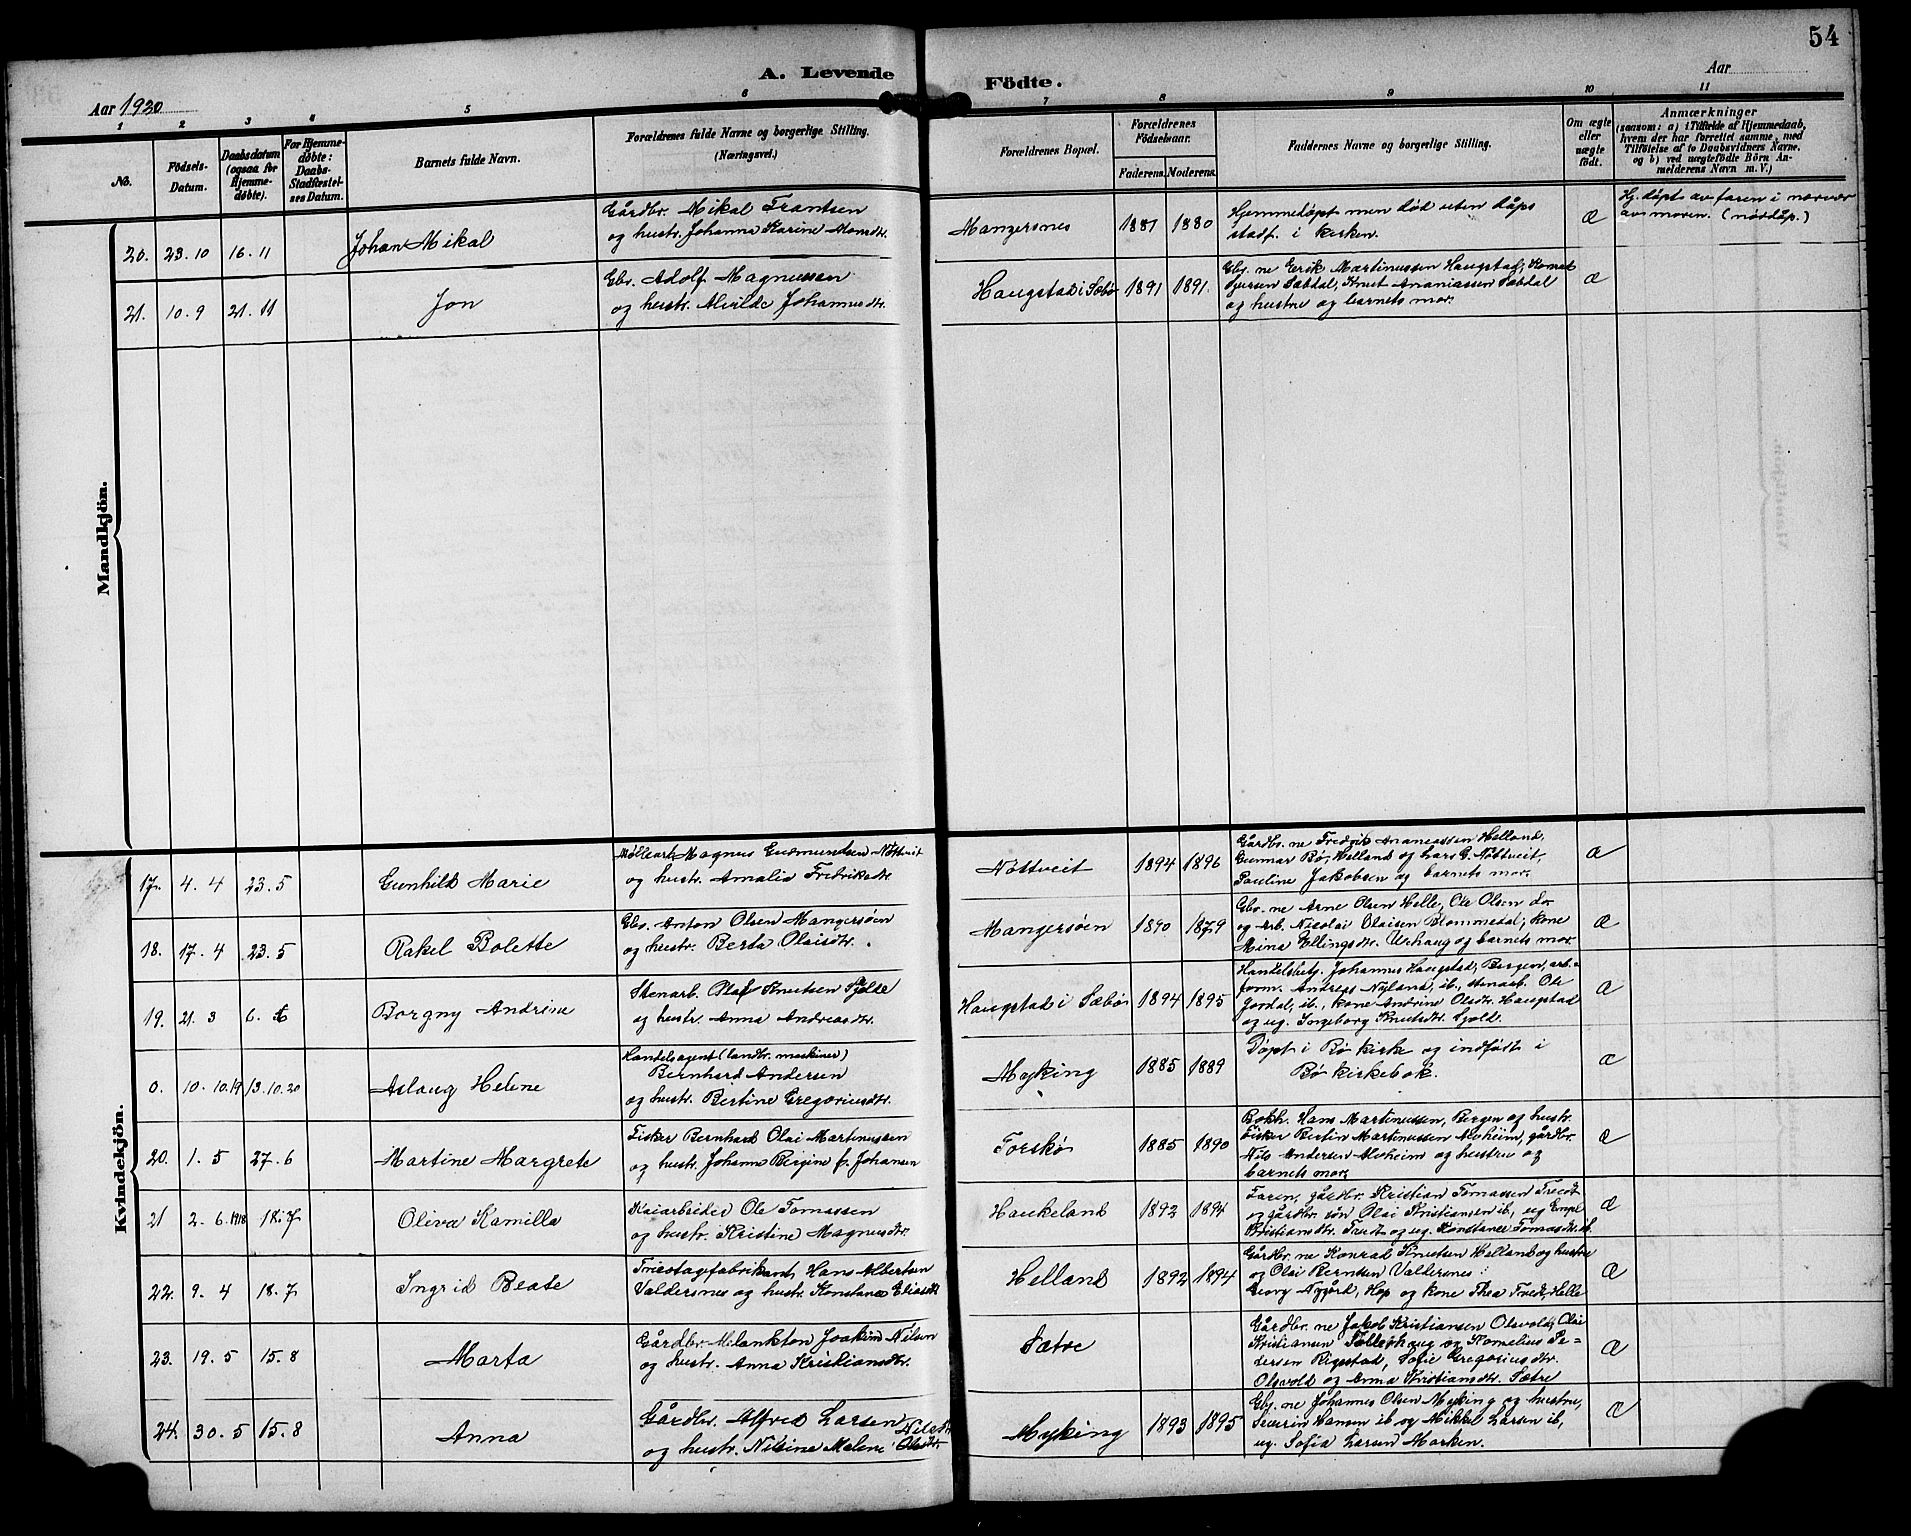 54
A. Levende Födte.
Aar 1920
Aar
1 2 3 4 5 6 7 8 9 10 11
No.
Födsels-Datum.
Daabsdatum (ogsaa for Hjemmedøbte).
For Hjemmedøbte: Daabs-Stadfæstelses Datum.
Barnets fulde Navn.
Forældrenes fulde Navne og borgerlige Stilling. (Næringsvei.)
Forældrenes Bopæl.
Forældrenes Födselsaar.
Faderens. Moderens.
Faddernes Navne og borgerlige Stilling.
Om ægte eller uægte födt.
Anmærkninger
(saasom: a) i Tilfælde af Hjemmedaab,
hvem der har forrettet samme, med
Tilføielse af to Daabsvidners Navne,
og b) ved uægtefödte Börn Anmelderens Navn m. V.)
Mandkjön.
20. 23.10 16.11 Johan Mikal
Gårdbr. Mikal Frantsen
og hustr. Johanna Karine Monsdtr.
Mangersnes 1881 1880
Hjemmedöpt men död uten dåps
stadf. i kirken.
Æ
Hj. döpt av faren i nærvær
av moren. (nöddåp.)
21. 10.9 21.11 Jon
Gbr. Adolf Magnussen
og hustr. Alvilde Johannesdtr.
Haugstad i Sæbø 1891 1891.
Gbr. ne Erik Martinussen Haugstad,
Sæbdal, Knut Ananiassen Sæbdal
og hustru og barnets mor.
Æ
Kvindekjön.
17. 4.4 23.5 Gunhild Marie
Möllearb. Magnus Gudmundsen Nöttveit
og hustr. Amalia Fredriksdtr.
Nöttveit 1894 1896
Gårdbr. ne Fredrik Ananiassen Helland,
Gunnar Bø, Helland og Lars G. Nöttveit,
Pauline Jakobsen og barnets mor.
Æ
18. 17.4 23.5 Rakel Bolette
Gbr. Anton Olsen Mangersöen
og hustr. Berta Olaisdtr.
Mangersöen 1890 1879
Gbr. ne Arne Olsen Helle, Ole Olsen do
og Arb. Nicolai Olaisen Blommedal; kone
Mina Ellingsdtr. Urhaug og barnets mor.
Æ
19. 21.3 6.6 Borgny Andrine
Stenarb. Olaf Knutsen Sjölde
og hustr. Anna Andreasdtr.
Haugstad i Sæbø 1894 1895
Handelsbetj. Johannes Haugstad, Bergen, arb.-
form. Andreas Nyland, ib., stenarb. Ole
Jordal, ib., kone Andrine Olsdtr. Haugstad
og ug. Ingeborg Knutsdtr. Sjöld.
Æ
0. 10.10.19 13.10.20 Aslaug Helene
Handelsagent (landbr. maskiner)
Bernhard Andersen
og hustr. Bertine Gregoriusdtr.
Myking 1885 1889
Döpt i Bø kirke og indfört i
Bø kirkebok.
Æ
20. 1.5 27.6 Martine Margrete
Fisker Bernhard Olai Martinussen
og hustr. Johanna Bergine f. Johansen
Torskø 1885 1890
Bokh. Hans Martinussen, Bergen og hustr.
fisker Bertin Martinussen Alvheim, gårdbr.
Nils Andersen Alvheim og hustru og
barnets mor.
Æ
21 2.6.1918 18.7 Oliva Kamilla
Kaiarbeider Ole Tomassen
og hustr. Kristine Magnusdtr.
Haukeland 1892 1894
Faren, gårdbr. Kristian Tomassen
og gårdbr. sön Olai Kristiansen ib, ug
Kristiansdtr. og ug. Konstanse Tomasdtr. ib.
Æ
22. 9.4 18.7 Ingrid Beate
Tricotagfabrikant Hans Albertsen
Valdersnes og hustr. Konstanse Eliasdtr
Helland 1892 1894
Gårdbr. ne Konrad Knutsen Helland og hustru
og Olai Berntsen Valdersnes
Georg Nygård, Hop og kone Thea Helle
Æ
23. 19.5 15.8 Marta
Gårdbr. Melankton Joakim Nilsen
og hustr. Anna Kristiansdtr.
Sætre
Gårdbr. ne Jakob Kristiansen Olsvold, Olai
Kristiansen og Kornelius Pe-
dersen Rigstad, Sofie Gregoriusdtr.
Olsvold og Anna Kristiansdtr. Sætre
Æ
24. 30.5 15.8 Anna
Gårdbr. Alfred Larsen
og hustr. Nilsine Malene Olsdtr
Myking 1893 1895
Gbr. ne Johannes Olsen Myking og hustru,
Severin Hansen ib og Mikkel Larsen ib,
ug. Sofia Larsen Marken.
Æ